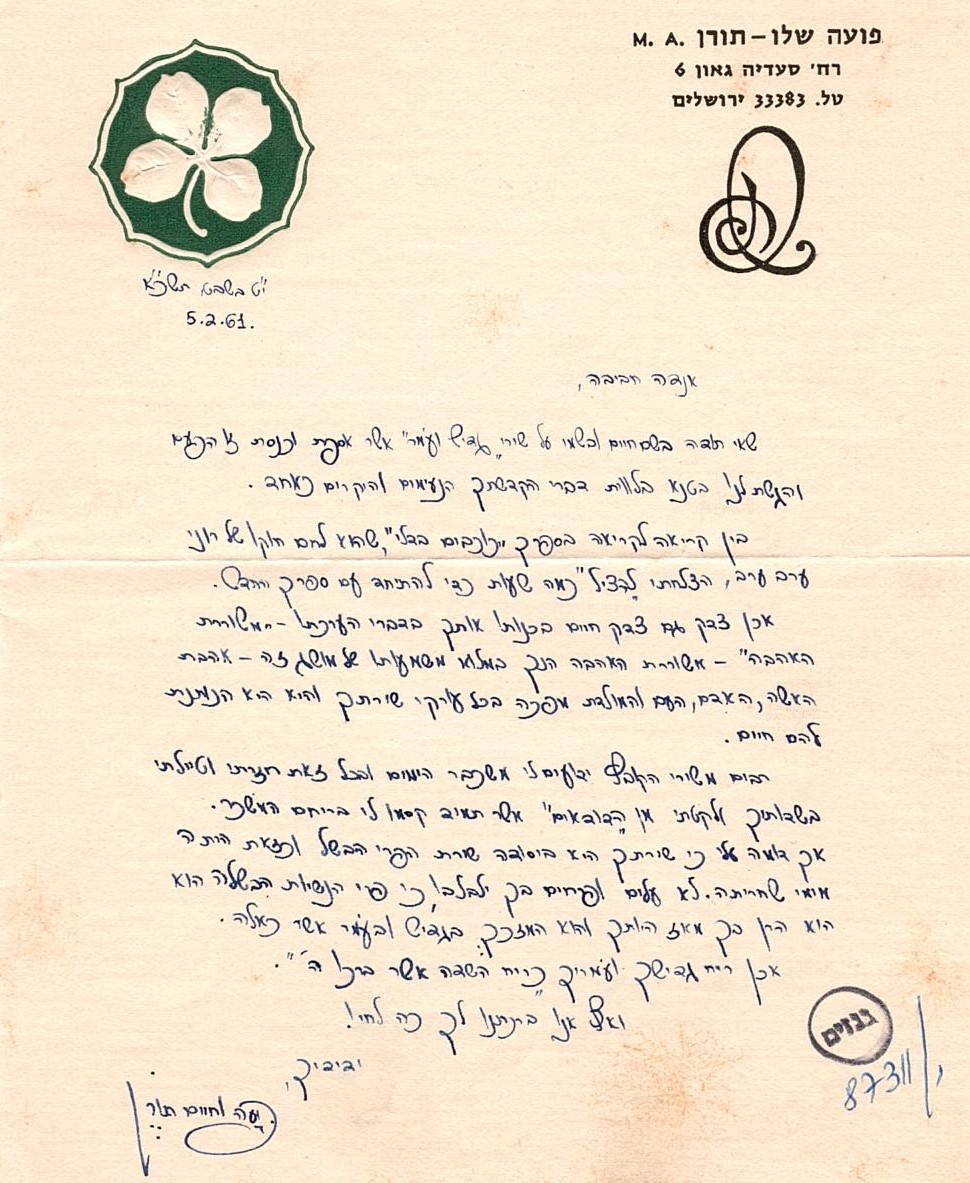 פועה שלו–תורן .M. A
רח' סעדיה גאון 6
טל. 33383 ירושלים
י"ט בשבט, תשכ"א
5.2.61.
אנדה חביבה,
שאי תודה בשם חיים ובשמי על שירי "גדיש ועמר" אשר אספת וכנסת
והגשת לנו בטנא בלווית דברי הקדשתך הנעימים והיקרים כאחד.
בין קריאה לקריאה בספרך "כוכבים בדלי", שהוא לחם חוקו של רוני
ערב ערב, הצלחתי "להציל" כמה שעות כדי להתיחד עם ספרך החדש.
אכן צדק גם צדק חיים בכנותו אותך בדברי הערכתו – "משוררת
האהבה" – משוררת האהבה הנך במלוא משמעותו של מושג זה – אהבת
האשה, האדם, העם והמולדת מפכה בכל עורקי שירתך והיא היא הנותנת
להם חיים.
רבים משירי הקובץ ידועים לי משכבר הימים ובכל זאת חזרתי וטיילתי
בשדותיך ולקטתי מן "הדודאים" אשר תמיד קסמו לי בריחם המשכר.
אך דומה עלי כי שירתך היא ביסודה שירת הפרי הבשל וכזאת היתה
מימי שחריתה. לא עלים ופרחים בך ילבלבו כי פרי הנשיות הבשלה הוא
הוא הרן בך מאז היותך והוא המזדכך בגדיש ובעמר אשר כאלה.
אכן ריח גדישך ועמריך "כריח השדה אשר ברכו ה'".
ואף אנו ברכתנו לך כה לחי!
ידידיך,
פועה וחיים תורן
גנזים
87311/י